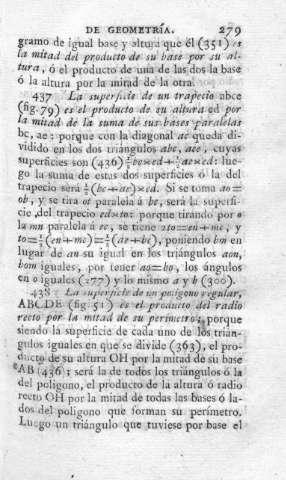 DE GEOMETRÍA. 279
gramo de igual base y altura que él (351) es
la mitad del producto de su base por su al-
tura, ó el producto de una de las dos la base
ó la altura por la mitad de la otra.
437 La superficie de un trapecio abce
(fig. 79) es el producto de su altura ed por
la mitad de la suma de sus bases paralelas
bc, ae: porque con la diagonal ac queda di-
vidido en los dos triángulos abc, ace, cuyas
superficies son (436) ½bc×ed+½ae×ed: lue-
go la suma de estas dos superficies ó la del
trapecio será ½(bc+ae)×ed. Si se toma ao=
ob, y se tira ot paralela á bc, será la superfi-
cie del trapecio ed×to: porque tirando por o
la mn paralela á ec, se tiene 2to=en+mc, y
to=½(en+mc)=½(ae+bc), poniendo bm en
lugar de an su igual en los triángulos aon,
bom iguales, por tener ao=bo, los ángulos
en o iguales (277) y lo mismo a y b (300).
438 La superficie de un polígono regular,
ABCDE (fig. 51) es el producto del radio
recto por la mitad de su perímetro: porque
siendo la superficie de cada uno de los trián-
gulos iguales en que se divide (363), el pro-
ducto de su altura OH por la mitad de su base
AB (436); será la de todos los triángulos ó la
del polígono, el producto de la altura ó radio
recto OH por la mitad de todas las bases ó la-
dos del polígono que forman su perímetro.
Luego un triángulo que tuviese por base el